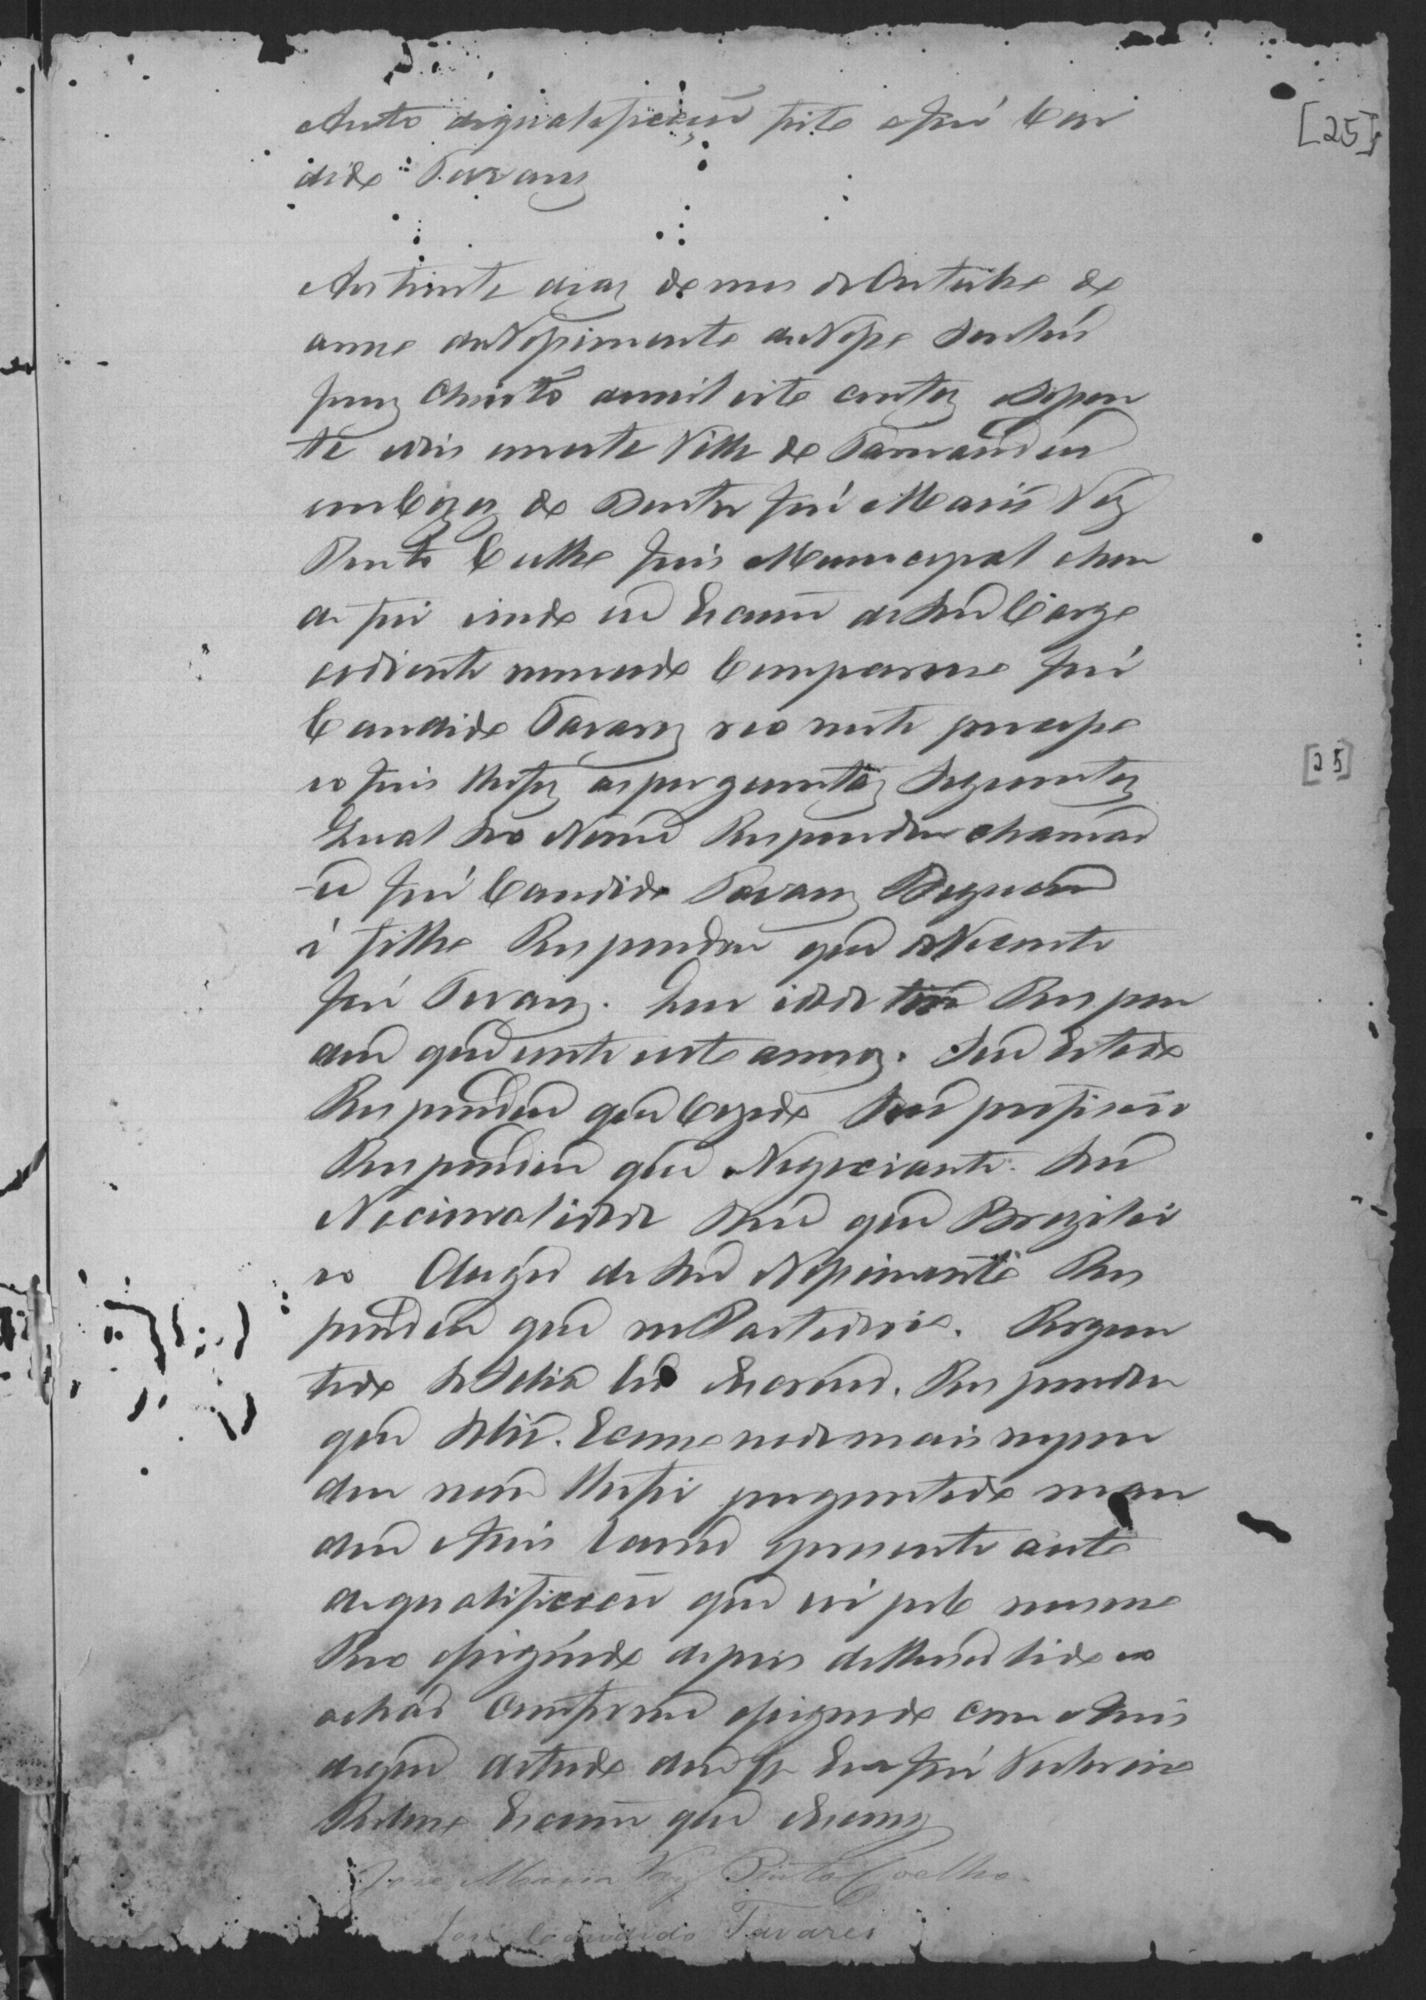 Auto dequalificação feito aJosé Can
dido Tavares
[25]
Aos trinta dias do mes deOutubro do
anno doNascimento deNosso Senhor
Jesus Christo demil oito centos
e seis nesta Villa de Tamanduá
em Caza do Doutor José Maria Vaz
Pinto Coelho Juis Municipal
a foi vindo eu Escrivão deseu Cargo
adiante nomeado Compareceo José
Candido Tavares reo neste processo
o Juis lhefes asperguntas Seguintes
Qual seo Nome Respondeu chamar
-se José Candido Tavares Dequem
é filho Respondeu que deVicente
José Tavares. Que idade tem Respon
deu que vinte oito annos. Seu Estado
[25]
Respondeu que Cazado Sua profissão
Respondeu que Negociante. Sua
Nacionalidade disse que Brazilei
ro O lugar de seu Nascimento Res
pondeu que no. Pergun
tado seSabia ler e Escrever. Respondeu
que Sabia. Ecomo nada mais respon
deu nem lhefoi perguntado man
dou oJuis lavrar opresente auto
dequalificação que vai pelo mesmo
Reo assignado depois delheser lido e o
achar Conforme assignado com oJuis
doque detudo dou fé Eu José
Escrivão que escrevy
José Maria Vaz Pinto Coelho.
José Candido Tavares